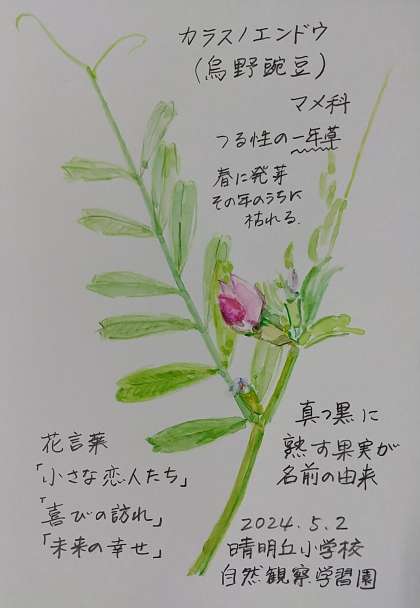 カラスノエンドウ
(烏野豌豆)
マメ科
つる性の一年草
春に発芽
その年のうちに
枯れる.
真っ黒に
熟す果実が
名前の由来
花言葉
「小さな恋人たち」
「喜びの訪れ」
「未来の幸せ」
2024.5.2
晴明丘小学校
自然観察学習園